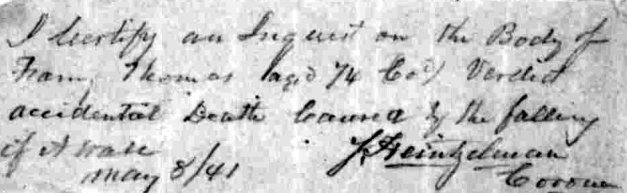 I Certify an Inquest on the Body of
Thomas aged 74 Cod) Verdict
accidental Death Caused by the falling
of A wall
may 8/41 J Heintzelman
Coroner